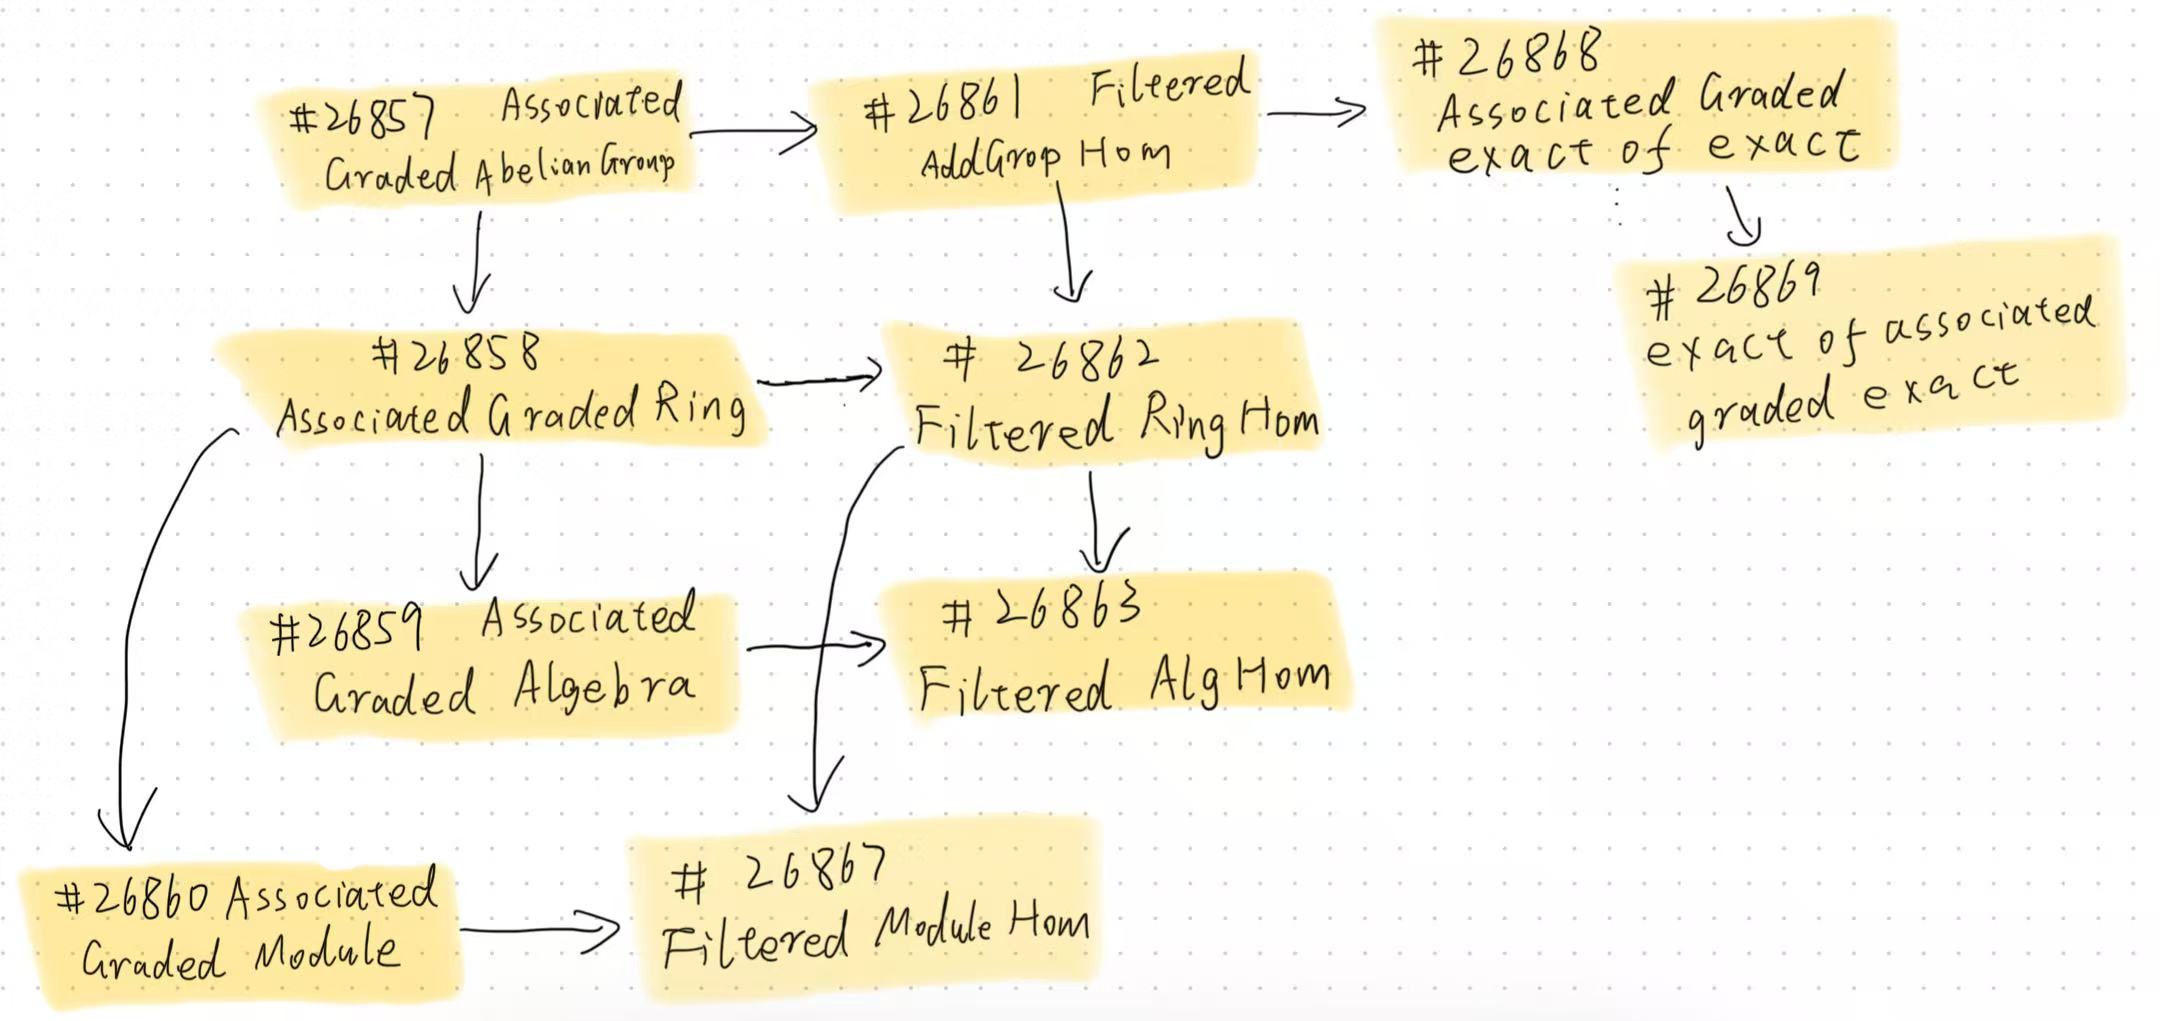 #26857 Associated
Graded Abelian Group
#26861 Filtered
AddGrop Hom
#26868
Associated Graded
exact of exact
#26869
exact of associated
graded exact
#26858
Associated Graded Ring
#26862
Filtered Ring Hom
#26859 Associated
Graded Algebra
#26863
Filtered Alg Hom
#26860 Associated
Graded Module
#26867
Filtered Module Hom